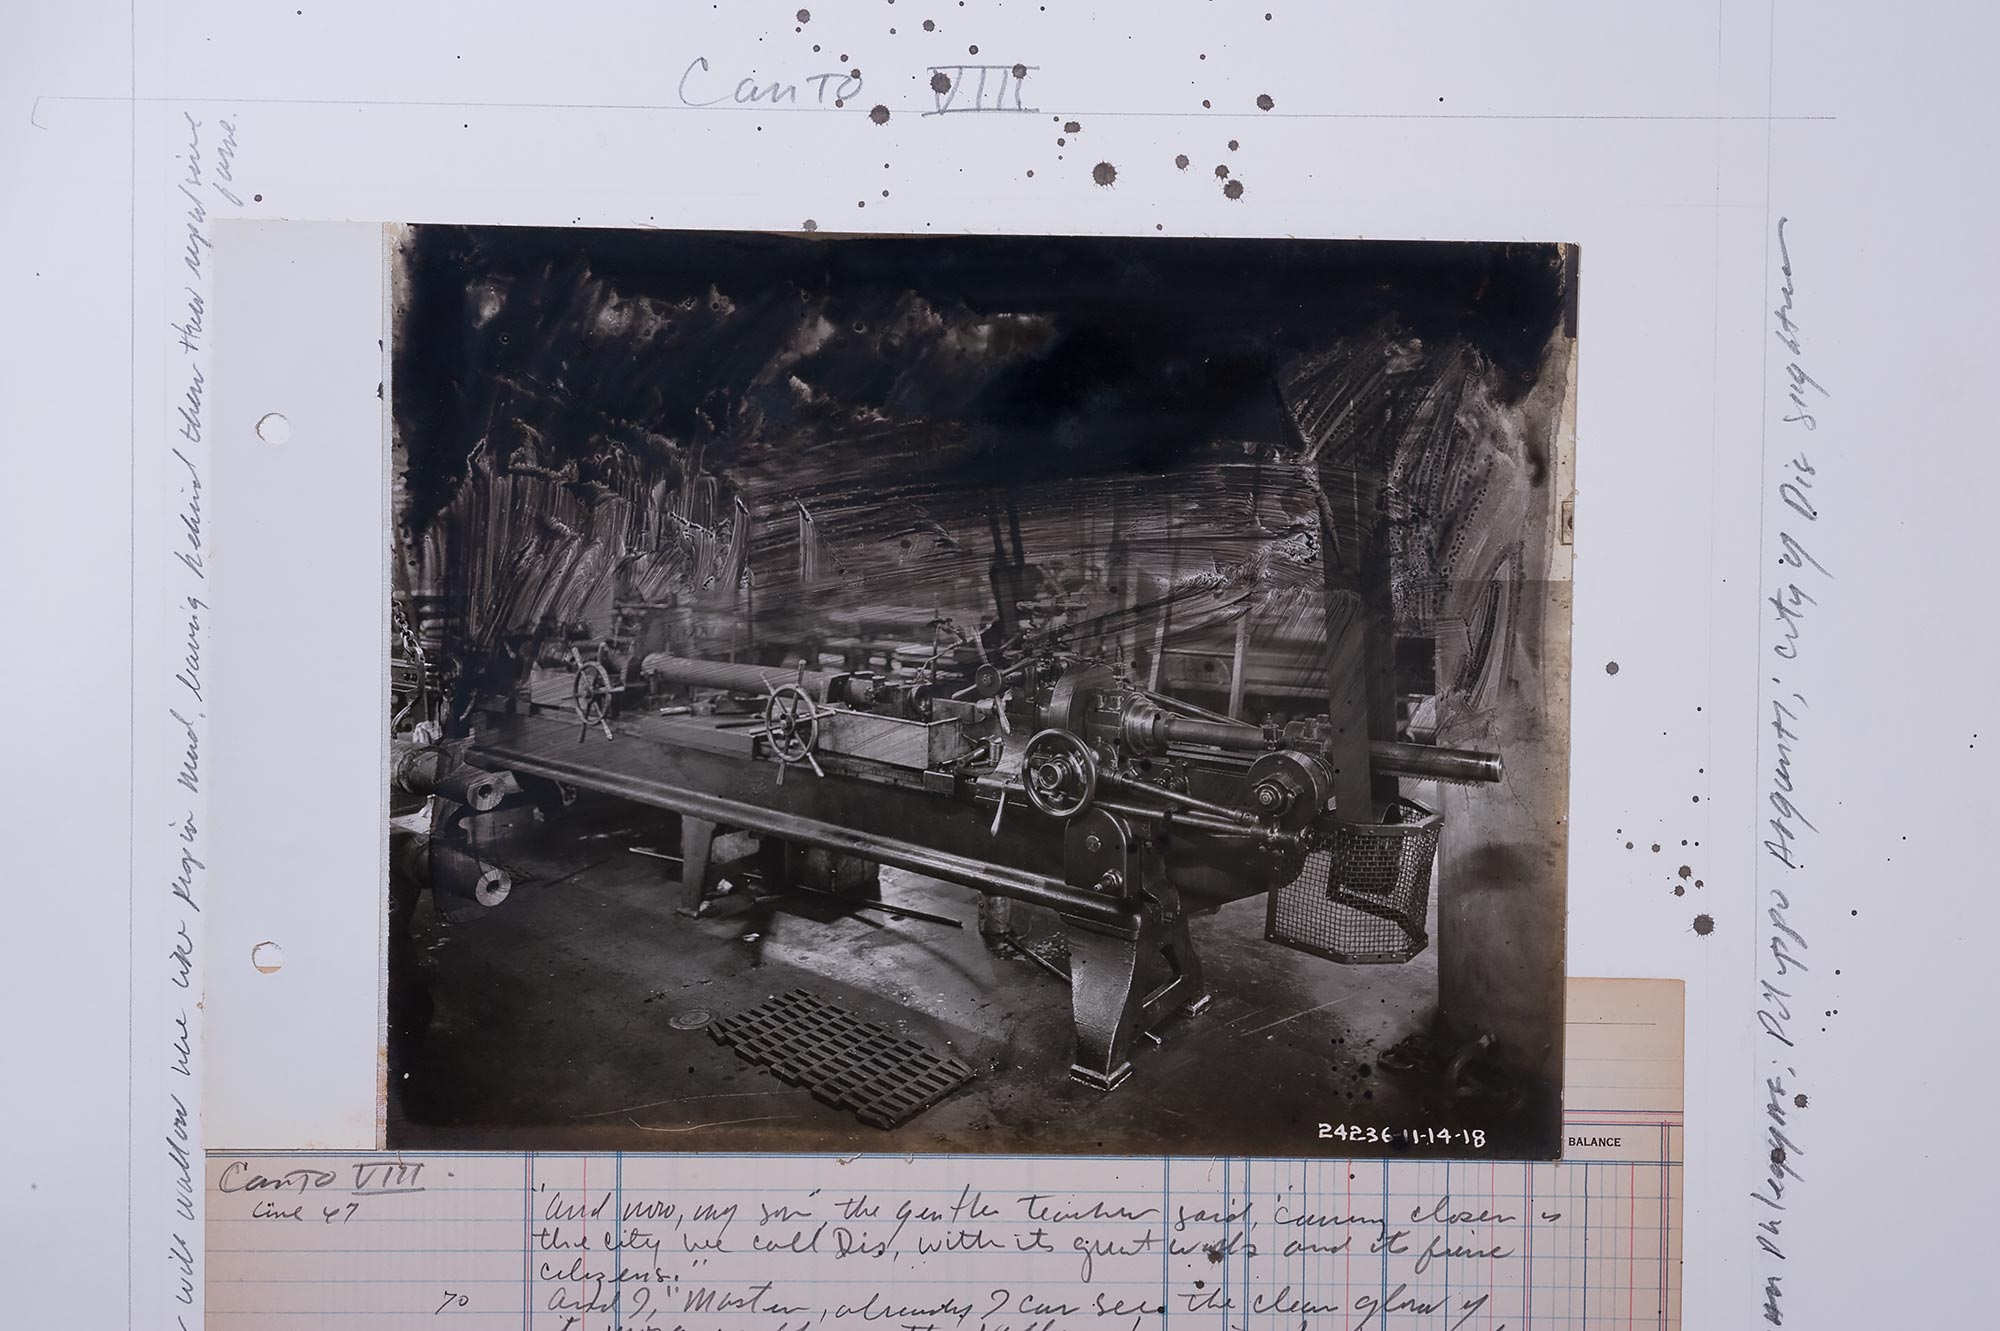 Canto VIII
will wallow here like pigs in mud, leaving behind them their repulsive
fame.
Phlegyas; Filippo Argenti; city of Dis sighted
24236-11-14-18
BALANCE
Canto VIII.
Line 67
"And now, my son" the gentle teacher said, "coming closer is
the city we call Dis, with its great walls and its fierce
citizens."
70
And I, "Master, already I can see the clear glow of